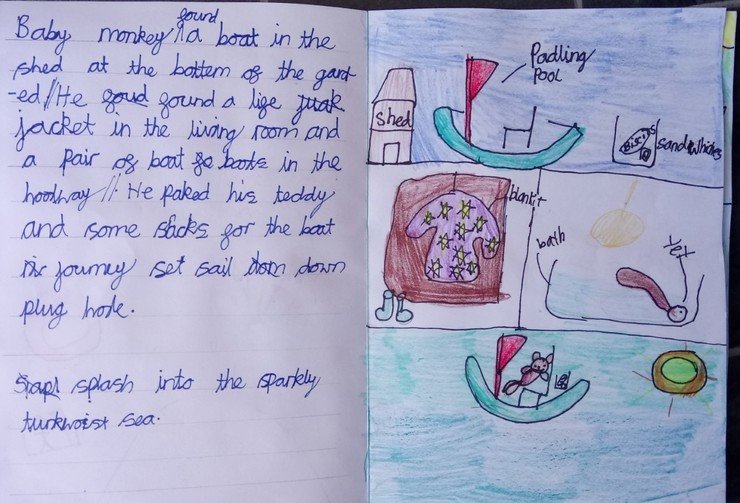 found
Baby monkey a boat in the
shed at the bottem of the gard
-ed//He found a life
jacket in the living room and
a pair of boat in the
hoolway// He paked his teddy
and some for the boat
journey set sail down
plug hole.
splash into the sparkly
turkwoist sea.
Padling
POOL
shed
sandwhiches
blankit
bath